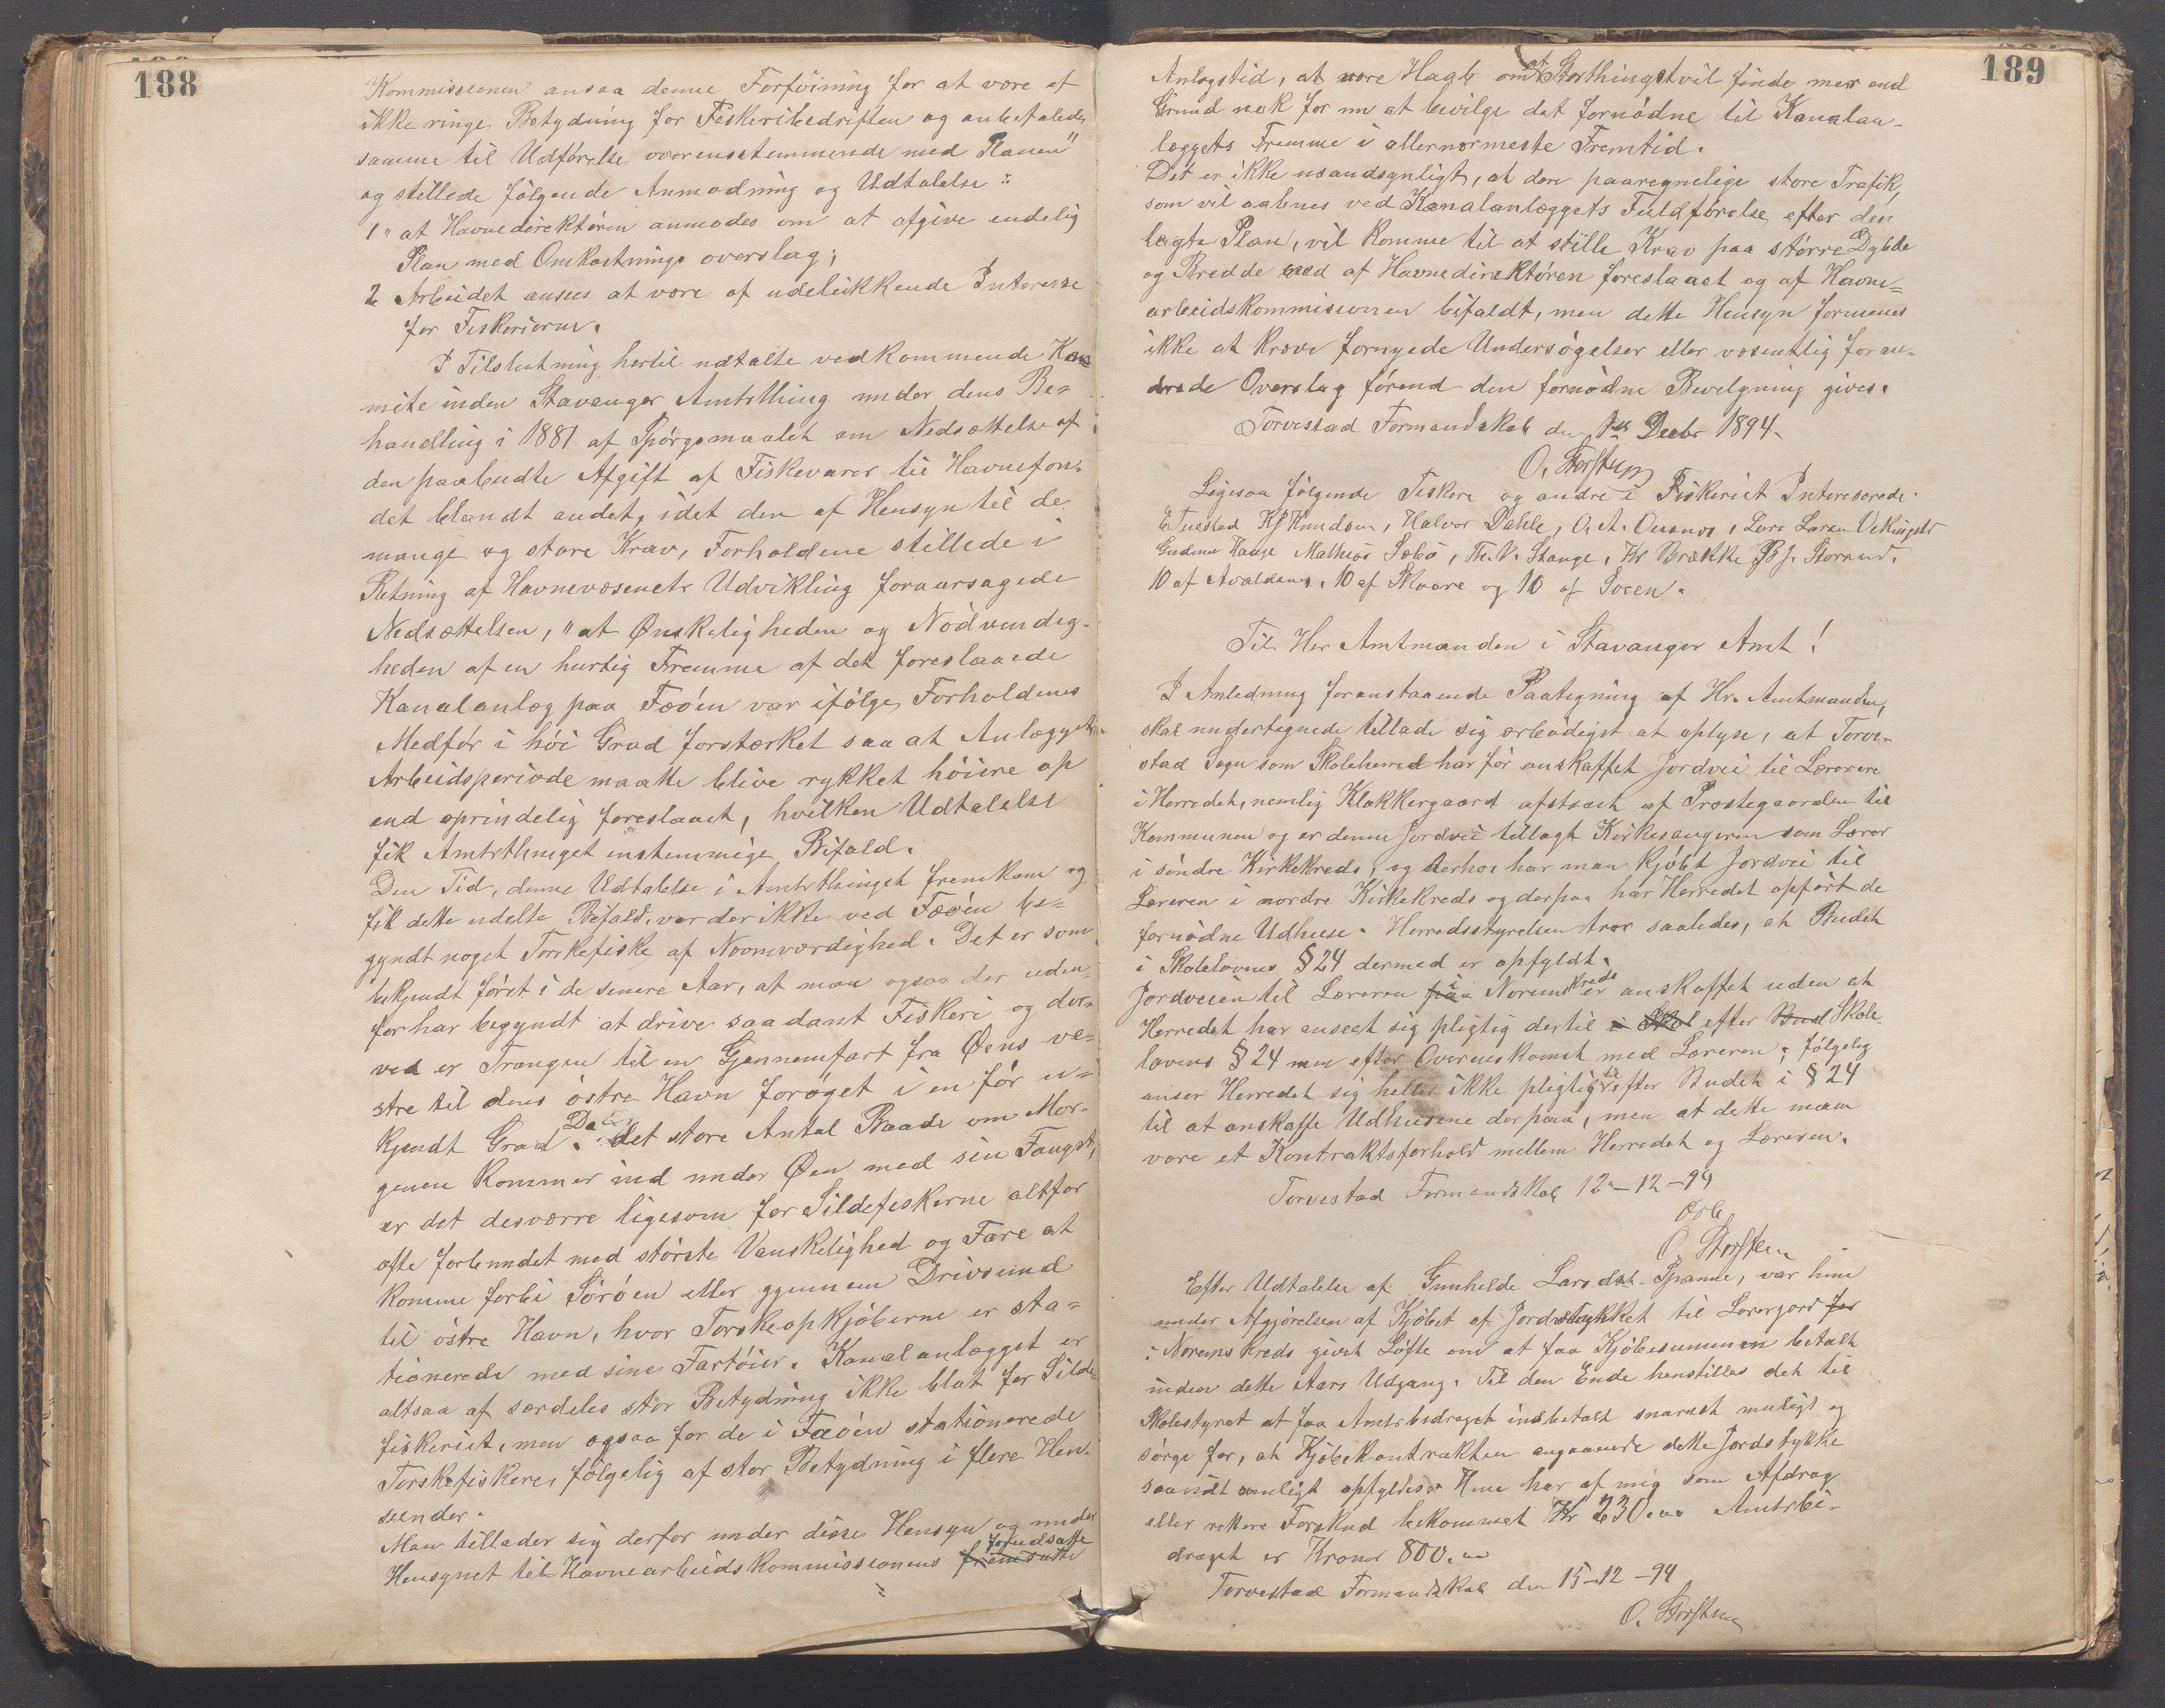 188
Kommissionen ansaa denne Forføining for at være af
ikke ringe Betydning for Fiskeribedriften og anbefalede
samme til Udførelse overensstemmende med Planen"
og stillede følgende Anmodning og Udtalelse:
1" at Havnedirektøren anmodes om at afgive endelig
Plan med Omkostnings overslag;
2 Arbeidet ansees at være af udelukkende Interesse
for Fiskerierne.
I Tilslutning hertil udtalte vedkommende Kom
mite inden Stavanger Amtsthing under dens Be-
handling i 1881 af Spørgsmaalet om Nedsættelse af
den paabudte Afgift af Fiskevarer til Havnefon-
det blandt andet, idet den af Hensyn til de
mange og store Krav, Forholdene stillede i
Retning af Havnevæsenets Udvikling foraarsagede
Nedsættelsen, "at Ønskeligheden og Nødvendig-
heden af en hurtig Fremme af det foreslaaede
Kanalanlæg paa Fæøen var ifølge Forholdenes
Medfør i høi Grad forstærket saa at Anlæggets
Arbeidsperiode maatte blive rykket høiere op
end oprindelig foreslaaet, hvilken Udtalelse
fik Amtsthinget enstemmige Bifald.
Den Tid, denne Udtalelse i Amtsthinget fremkom og
fik dette udelte Bifald, var der ikke ved Fæøen be-
gyndt noget Torskefiske af Nævneværdighed. Det er som
bekjendt først i de senere Aar, at man ogsaa der uden-
for har begyndt at drive saadant Fiskeri og der-
ved er Trangen til en Gjennemfart fra Øens ve-
stre til dens østre Havn forøget i en før u-
kjendt Grad. Da det store Antal Baade om Mor-
genen kommer ind under Øen med sin Fangst,
er det desværre ligesom for Sildefiskerne altfor
ofte forbundet med største Vanskelighed og Fare at
komme forbi Sørøen eller gjennem Drivsund
til østre Havn, hvor Torskeopkjøberne er sta-
tionerede med sine Fartøier. Kanalanlægget er
altsaa af særdeles stor Betydning ikke blot for Silde-
fiskeriet, men ogsaa for de i Fæøen stationerede
Torskefiskere, følgelig af stor Betydning i flere Hen-
seender.
Man tillader sig derfor under disse Hensyn og under
Hensynet til Havnearbeidskommissionens fremsatte forudsatte
189
Anlægstid, at nære Haab om at Storthinget vil finde mer end
Grund nok for nu at bevilge det fornødne til Kanalan-
læggets Fremme i allernærmeste Fremtid.
Det er ikke usandsynligt, at den paaregnelige store Trafik,
som vil aabnes ved Kanalanlæggets Fuldførelse efter den
lagte Plan, vil komme til at stille Krav paa større Dybde
og Bredde end af Havnedirektøren foreslaaet og af Havne-
arbeidskommissionen bifaldt, men dette Hensyn formenes
ikke at kræve fornyede Undersøgelser eller væsentlig foran-
drede Overslag førend den fornødne Bevilgning gives.
Torvestad Formandskab den Decbr 1894.
O. Storsten
Ligesaa følgende Fiskere og andre i Fiskeriet Interesserede.
Knudsen, Halvor Dahle, O. A.
Mathias Sæbø, Th. V. Stange, Hr Brække Storsund.
10 af Avaldsnes. 10 af Skaare og 10 af
Til Her Amtmanden i Stavanger Amt!
I Anledning foranstaaende Paategning af Hr. Amtmanden,
skal undertegnede tillade sig ærbødigst at oplyse, at Torve-
stad Sogn som Skoleherred har før anskaffet Jordvei til Lærerere
i Herredet, nemlig Klokkergaard afstaaet af Præstegaarden til
Kommunen og er denne Jordvei tillagt Kirkesangeren som Lærer
i søndre Kirkekreds, og derhos har man kjøbt Jordvei til
Læreren i nordre Kirkekreds og derpaa har Herredet opført de
fornødne Udhuse. Herredsstyrelsen tror saaledes, at Budet
i Skolelovens § 24 dermed er opfyldt.
Jordveien til Læreren paa i Norems kreds er anskaffet uden at
Herredet har anseet sig pligtig dertil i Skol efter Bud Skole-
lovens § 24 men efter Overenskomst med Læreren; følgelig
anser Herredet sig heller ikke pligtig efter Budet i § 24
til at anskaffe Udhusene derpaa, men at dette maa
være et Kontraktsforhold mellem Herredet og Læreren.
Torvestad Formandskab 12-12-94
Ærb
O. Storsten
Efter Udtalelse af Gunhilde Larsdat. Spanne, var hun
under Afgjørelsen af Kjøbet af Jordstykket til Lærerjord for
i Norems kreds givet Løfte om at faa Kjøbesummen betalt
inden dette Aars Udgang. Til den Ende henstilles det til
Skolestyret at faa Amtsbidraget indbetalt snarest muligt og
sørge for, at Kjøbekontrakten angaaende dette Jordstykke
saavidt muligt opfyldes. Hun har af mig som Afdrag
eller rettere Forskud bekommet Kr 230.00 Amtsbi-
draget er Kroner 800.00
Torvestad Formandskab den 15-12-94
O. Storsten